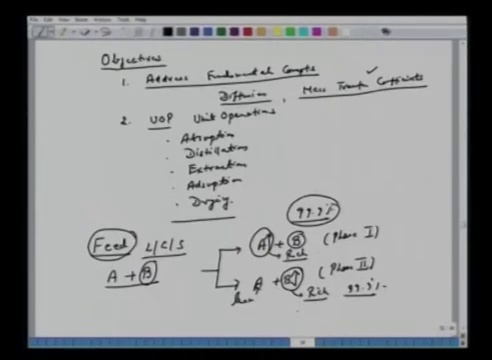 Objectives
1. Address Fundamental Concepts
Diffusion, Mass Transfer Coefficients
2. UOP Unit Operations
· Absorption
· Distillation
· Extraction
· Adsorption
· Drying
99.9%
Feed L/G/S
A + B
A↑ + B (Phase I)
Rich
A + B↑ (Phase II)
Rich 99.9%